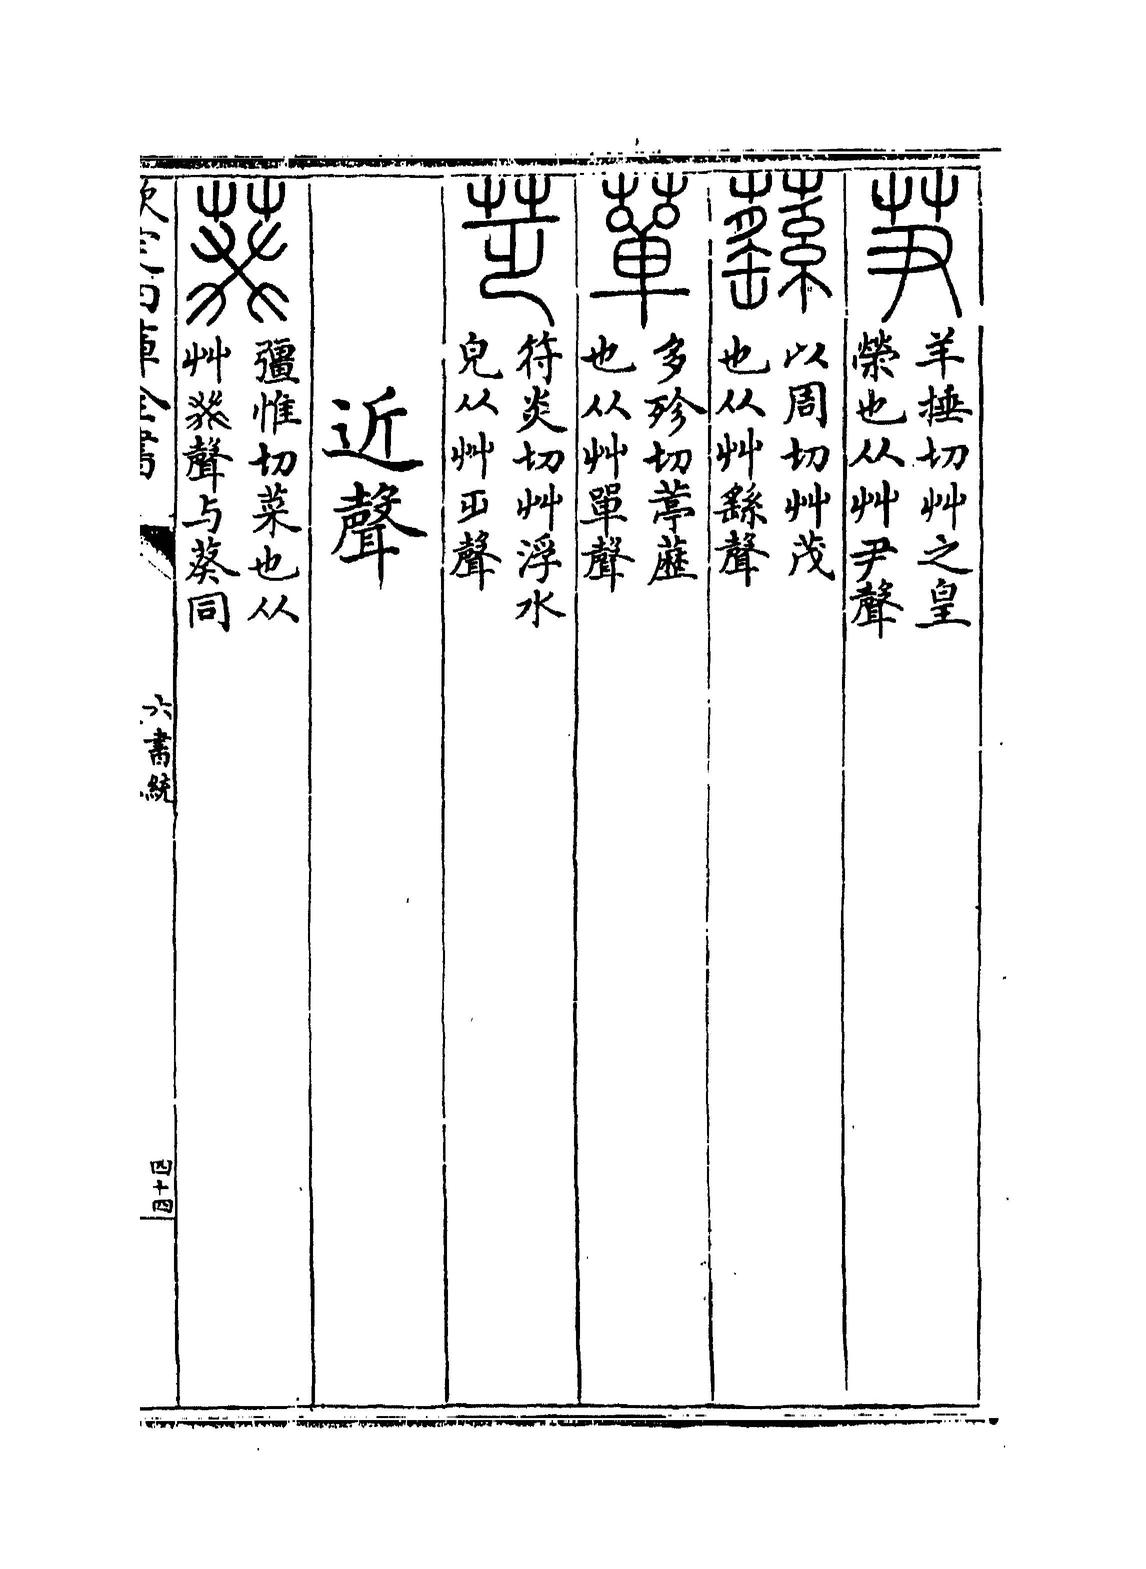 芛
羊捶切艸之皇
榮也从艸尹聲
蘨
以周切艸茂
也从艸繇聲
蕇
多殄切葶藶
也从艸單聲
芝
符炎切艸浮水
皃从艸乏聲
近聲
葵
彊惟切菜也从
艸癸聲与葵同
欽定四庫全書
六書統
四十四